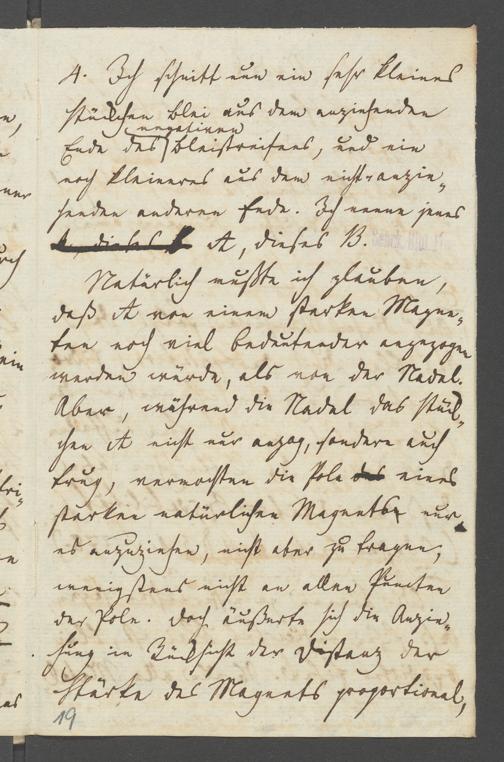 4. Ich schnitt nun ein sehr kleines
Stückchen Blei aus dem anziehenden
negativen
Ende des Bleistreifens, und ein
noch kleineres aus dem nicht-anzie-
henden anderen Ende. Ich nenne jenes
A, dieses B.
Natürlich mußte ich glauben,
daß A von einem starken Magne-
ten noch viel bedeutender angezogen
werden würde, als von der Nadel.
Aber, während die Nadel das Stück-
chen A nicht nur anzog, sondern auch
trug, vermochten die Pole eines
starken natürlichen Magnets nur
es anzuziehen, nicht aber zu tragen,
wenigstens nicht an allen Puncten
der Pole. Doch äußerte sich die Anzie-
hung in Rücksicht der Distanz der
Stärke des Magnets proportional,
19